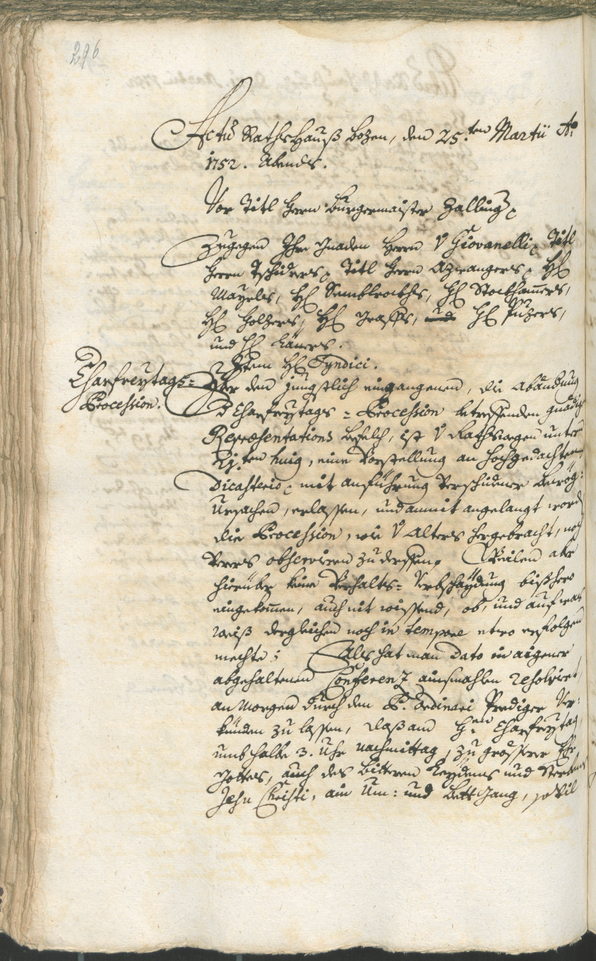 296
Actu Rathshauß Bozen, den 25.ten Martii Ao
1752. Abends.
Vor Titl Herrn Burgermaister Zallinger
Zugegen Ihr Gnaden Herrn V Giovanelli, Titl
Herrn Tschiders, Titl Herrn Azwangers, H
Mayrls, H Sembleoths, H Stockhamers,
H Holzers, H Graffs, und H Puzers,
und H
Item H Syndici.
Charfreytags=
Procession.
Yber den jüngstlich eingangenen, die Abänderung
d Charfreytags=Procession betreffenden gnädig
Repræsentations befelch, ist V Rathswegen unter
ten huig, eine Vorstellung an hochgedachten
Dicasterio, mit anführung verschidener bewög:
Ursachen, erlassen, und anmit angelangt word
die Procession, wie V Alters hergebracht, noch
ferers observiren zu derffen, Weilen aber
hierüber keine Verhalts=Verbschaydung bißhero
eingekomen, auch nit wissend, ob, und auf was
weiß dergleichen noch in tempore etwo erfolgen
mechte; Alß hat man dato in aigener
abgehaltenen Conferenz ainsmahlen resolvirt
an Morgen durch den P. Ordinari Prediger ver:
künden zu lassen, daß am H: Charfreytag
umb halbe 3. Uhr nachmittag, zu grösserer Ehr
Gottes, auch des bitteren Leydens und Sterbens
Jesu Christi, ain Um: und Bettgang, so vil